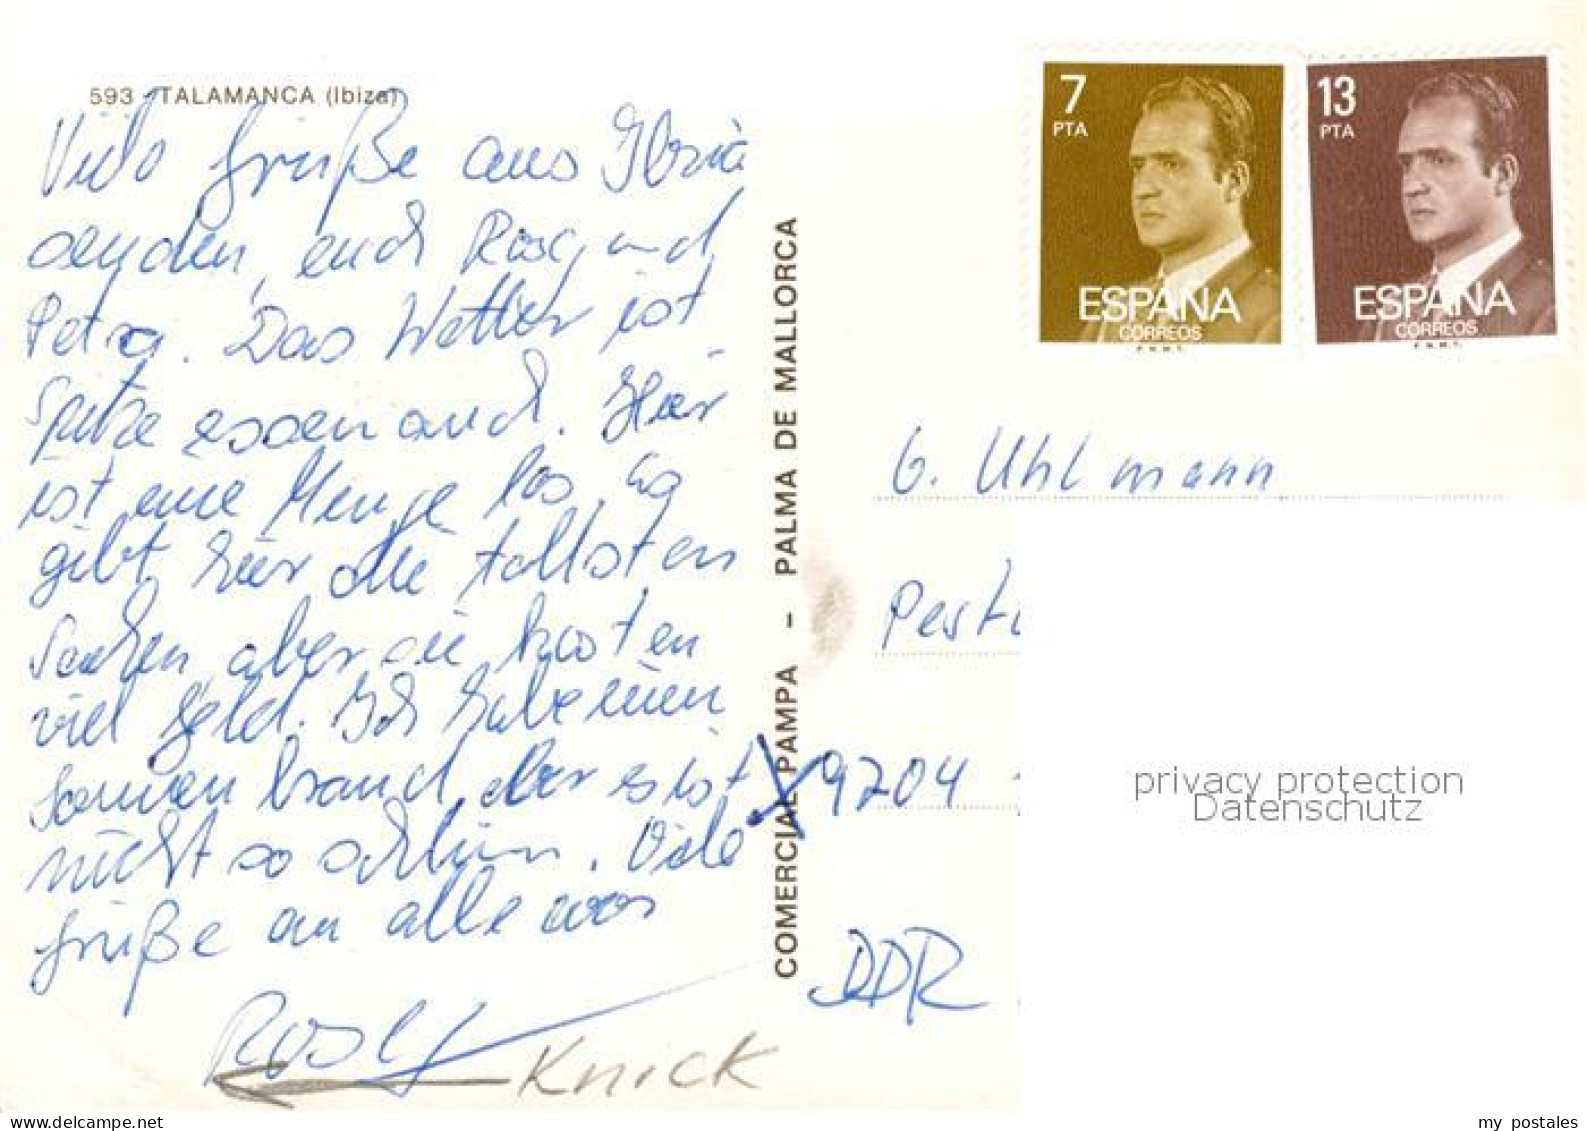 593 - TALAMANCA (Ibiza)
Viele Grüße aus Ibiza
senden euch Rosy und
Petra. Das Wetter ist
Spitze essen auch. Hier
ist eine Menge los. Es
gibt hier die tollsten
Sachen, aber sie kosten
viel Geld. Ich habe einen
Sonnenbrand, aber es ist
nicht so schlimm. Viele
Grüße an alle von
Rosy
Knick
COMERCIAL PAMPA - PALMA DE MALLORCA
7
PTA
ESPAÑA
CORREOS
F.N.M.T.
13
PTA
ESPAÑA
CORREOS
F.N.M.T.
G. Uhlmann
9704
DDR
privacy protection
Datenschutz
my postales